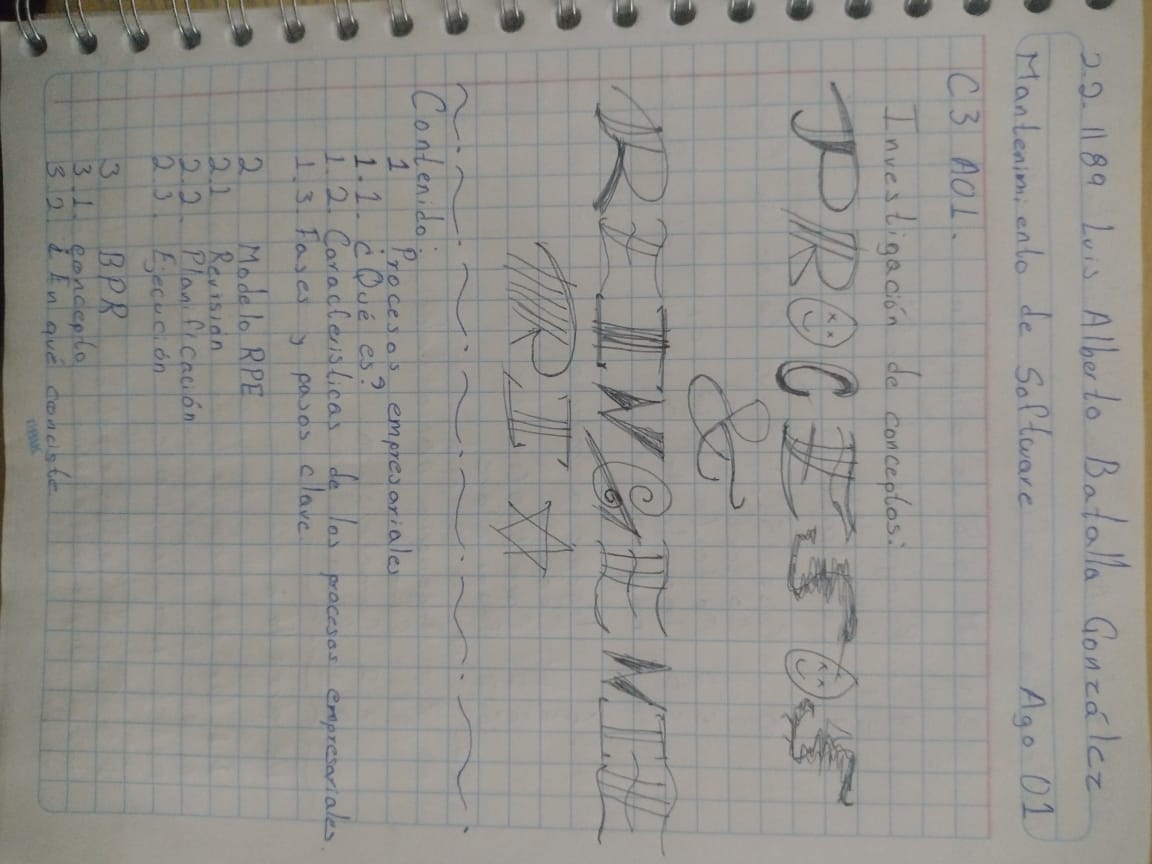 22-1189 Luis Alberto Batalla González
Mantenimiento de Software Ago 01
C3 A01.
Investigación de conceptos:
PROCESOS
&
REINGENIE
RÍ
Contenido:
1 Procesos empresariales
1.1. ¿Qué es?
1.2. Características de los procesos empresariales.
1.3. Fases y pasos clave
2 Modelo RPE
2.1 Revisión
2.2. Planificación
2.3. Ejecución
3 BPR
3.1. concepto
3.2. ¿En qué consiste